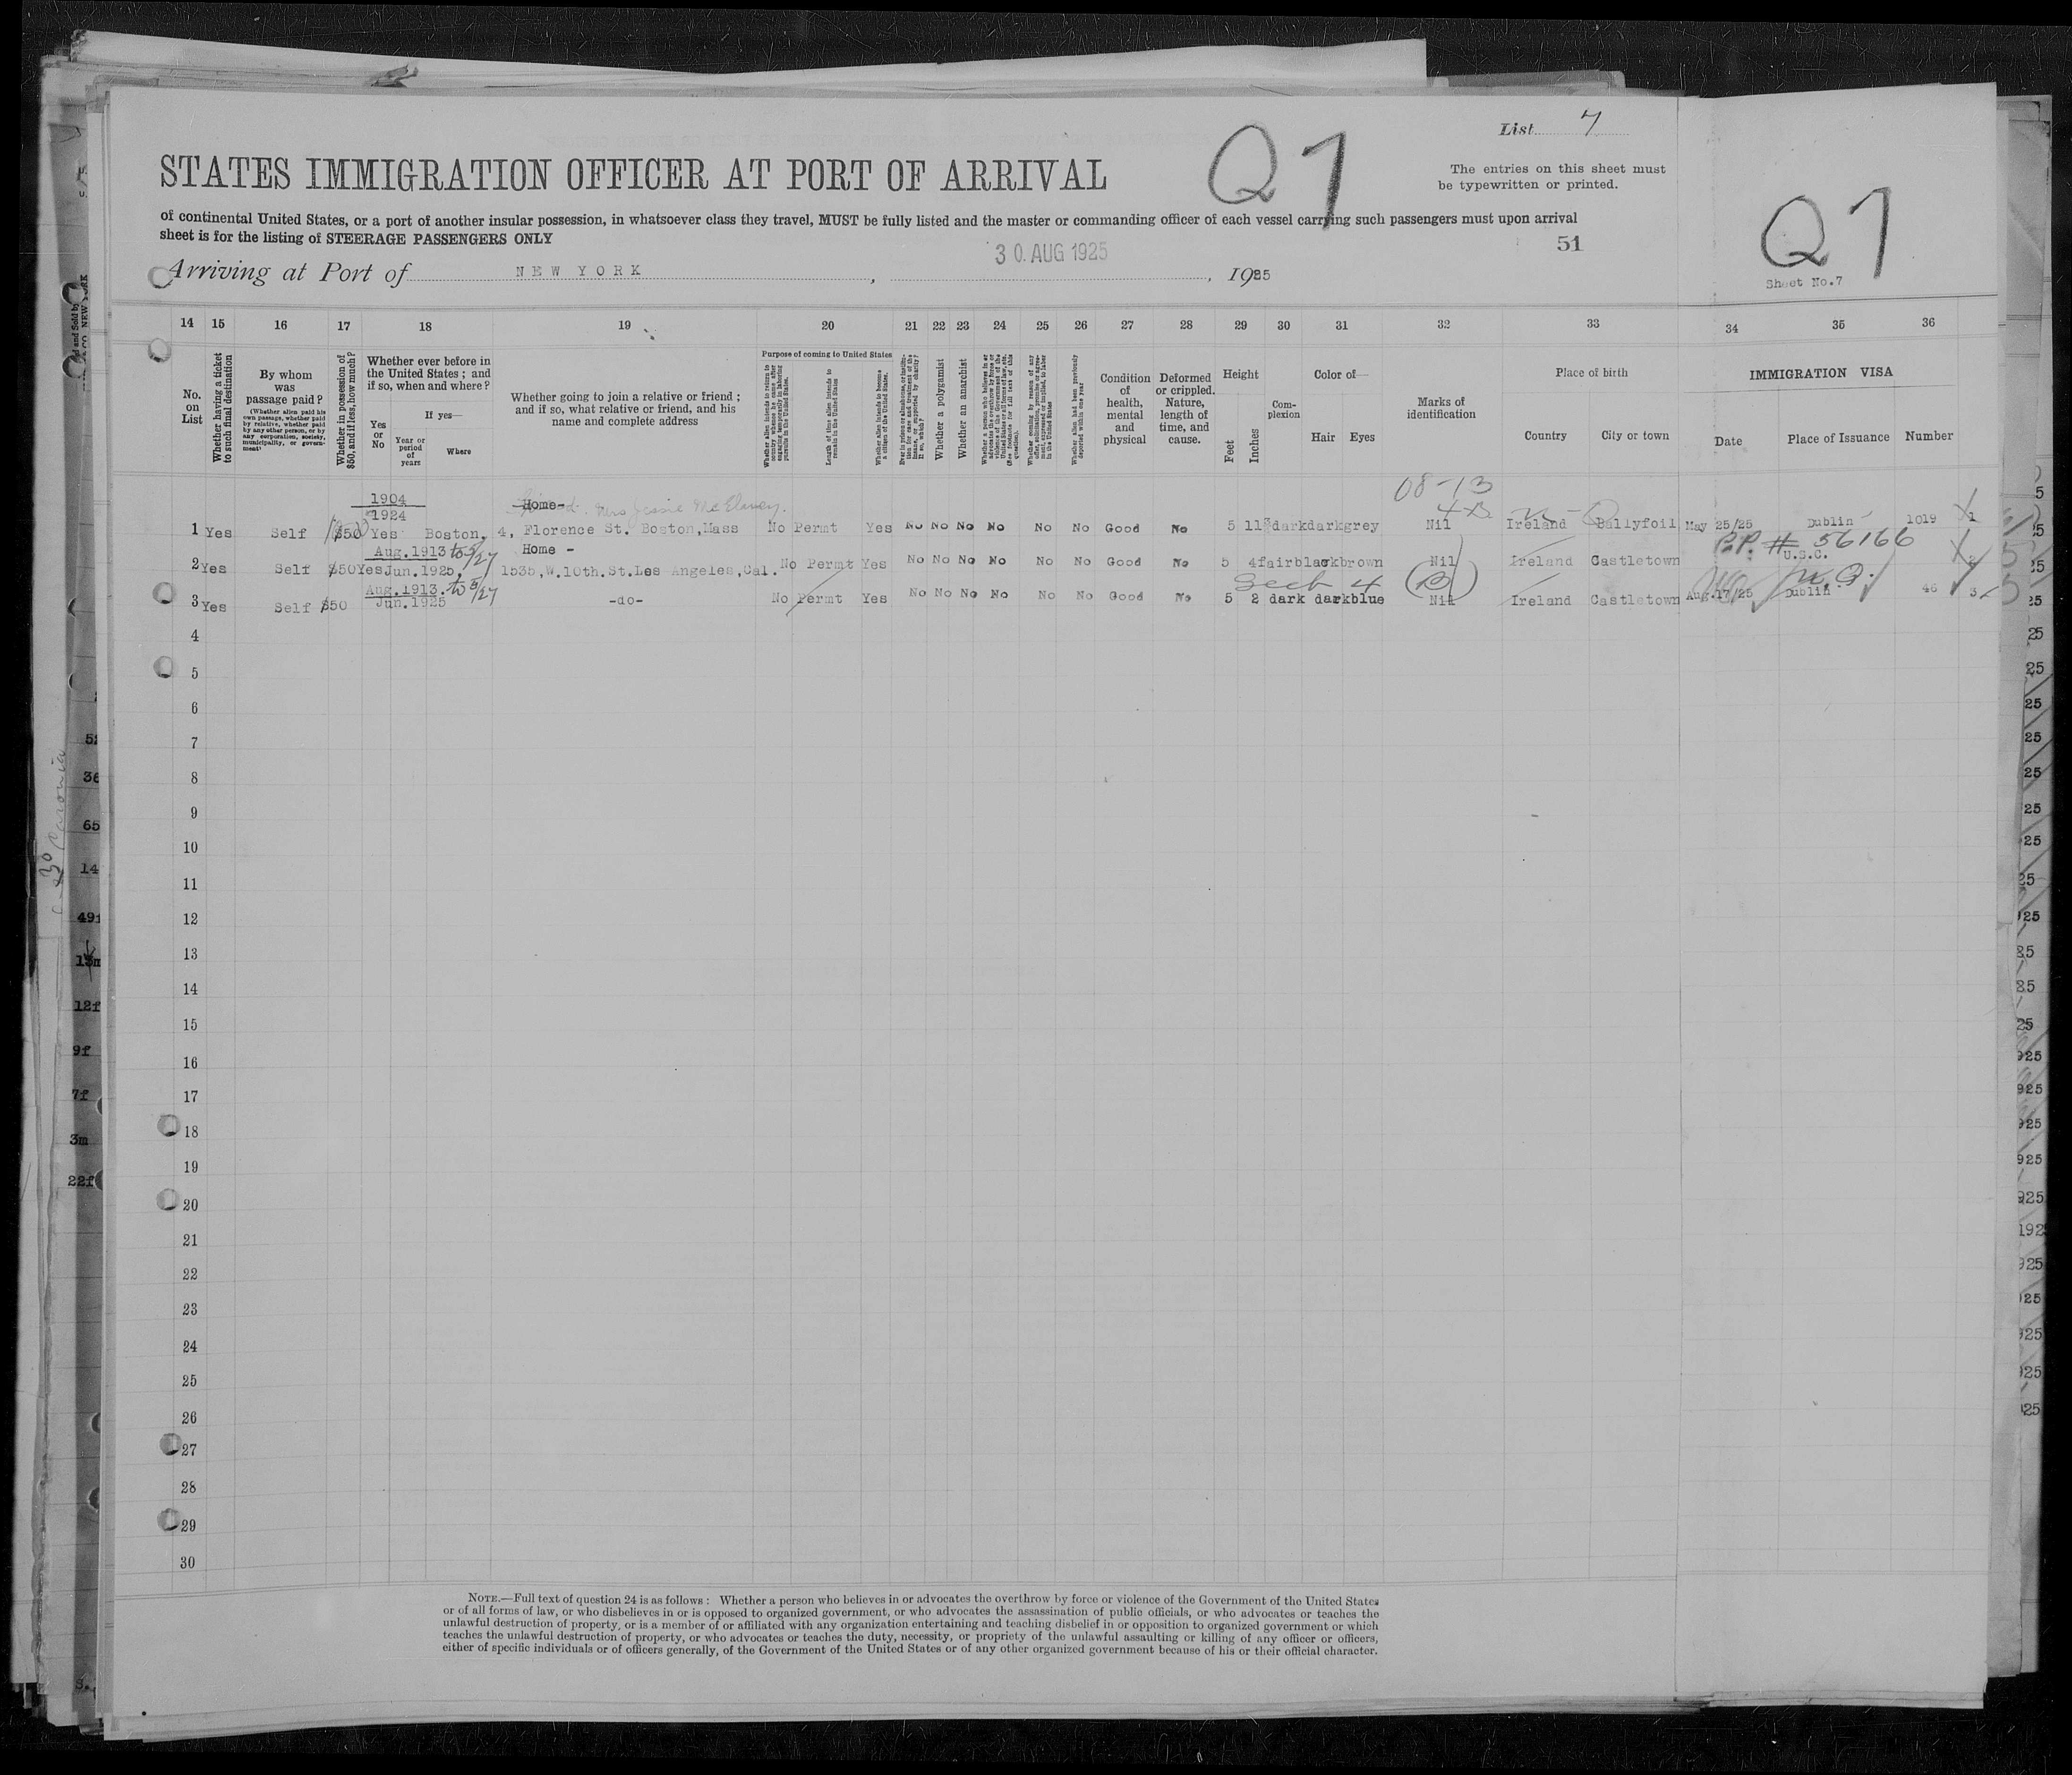 List 7
Q7
STATES IMMIGRATION OFFICER AT PORT OF ARRIVAL
The entries on this sheet must
be typewritten or printed.
Q7
of continental United States, or a port of another insular possession, in whatsoever class they travel, MUST be fully listed and the master or commanding officer of each vessel carrying such passengers must upon arrival
sheet is for the listing of STEERAGE PASSENGERS ONLY
30. AUG 1925
51
Arriving at Port of NEW YORK , , 1925
Sheet No.7
14 15 16 17 18 19 20 21 22 23 24 25 26 27 28 29 30 31 32 33 34 35 36
No. on List
Whether having a ticket to such final destination
By whom was passage paid?
(Whether alien paid his own passage, whether paid by relative, whether paid by any other person, or by any corporation, society, municipality, or government)
Whether in possession of $50, and if less, how much?
Whether ever before in the United States; and if so, when and where?
Yes or No
If yes—
Year or period of years
Where
Whether going to join a relative or friend; and if so, what relative or friend, and his name and complete address
Purpose of coming to United States
Whether alien intends to return to country whence he came after engaging temporarily in laboring pursuits in the United States.
Length of time alien intends to remain in the United States
Whether alien intends to become a citizen of the United States.
Whether a polygamist
Whether an anarchist
Whether alien had been previously deported within one year
Condition of health, mental and physical
Deformed or crippled. Nature, length of time, and cause.
Height
Feet
Inches
Complexion
Color of—
Hair Eyes
Marks of identification
Place of birth
Country City or town
IMMIGRATION VISA
Date Place of Issuance Number
08-13
1904 Home- Mrs
1924
1 Yes Self $50 Yes Boston, 4, Florence St. Boston,Mass No Permt Yes No No No No No No Good No 5 11 dark dark grey Nil Ireland Ballyfoil May 25/25 Dublin 1019 1
Aug.1913 to 5/27 Home - P.P. # 56166
2 Yes Self $50 Yes Jun.1925, 1535,W.10th.St.Los Angeles,Cal. No Permt Yes No No No No No No Good No 5 4 fair black brown Nil Ireland Castletown U.S.C. 2
Aug.1913. to 5/27 Sect 4 (B)
3 Yes Self $50 Jun.1925 -do- No Permt Yes No No No No No No Good No 5 2 dark dark blue Nil Ireland Castletown Aug.17/25 Dublin 46 3
4
5
6
7
8
9
10
11
12
13
14
15
16
17
18
19
20
21
22
23
24
25
26
27
28
29
30
NOTE.—Full text of question 24 is as follows: Whether a person who believes in or advocates the overthrow by force or violence of the Government of the United States
or of all forms of law, or who disbelieves in or is opposed to organized government, or who advocates the assassination of public officials, or who advocates or teaches the
unlawful destruction of property, or is a member of or affiliated with any organization entertaining and teaching disbelief in or opposition to organized government or which
teaches the unlawful destruction of property, or who advocates or teaches the duty, necessity, or propriety of the unlawful assaulting or killing of any officer or officers,
either of specific individuals or of officers generally, of the Government of the United States or of any other organized government because of his or their official character.